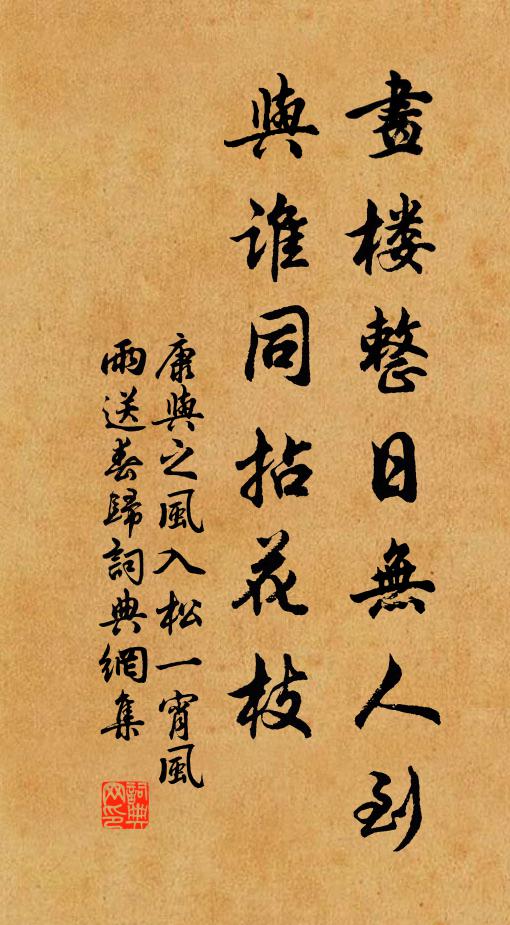 畫楼整日無人到
與誰同拈花枝
康與之風入松一宵風
雨送春歸詞典網集
詞典
网印